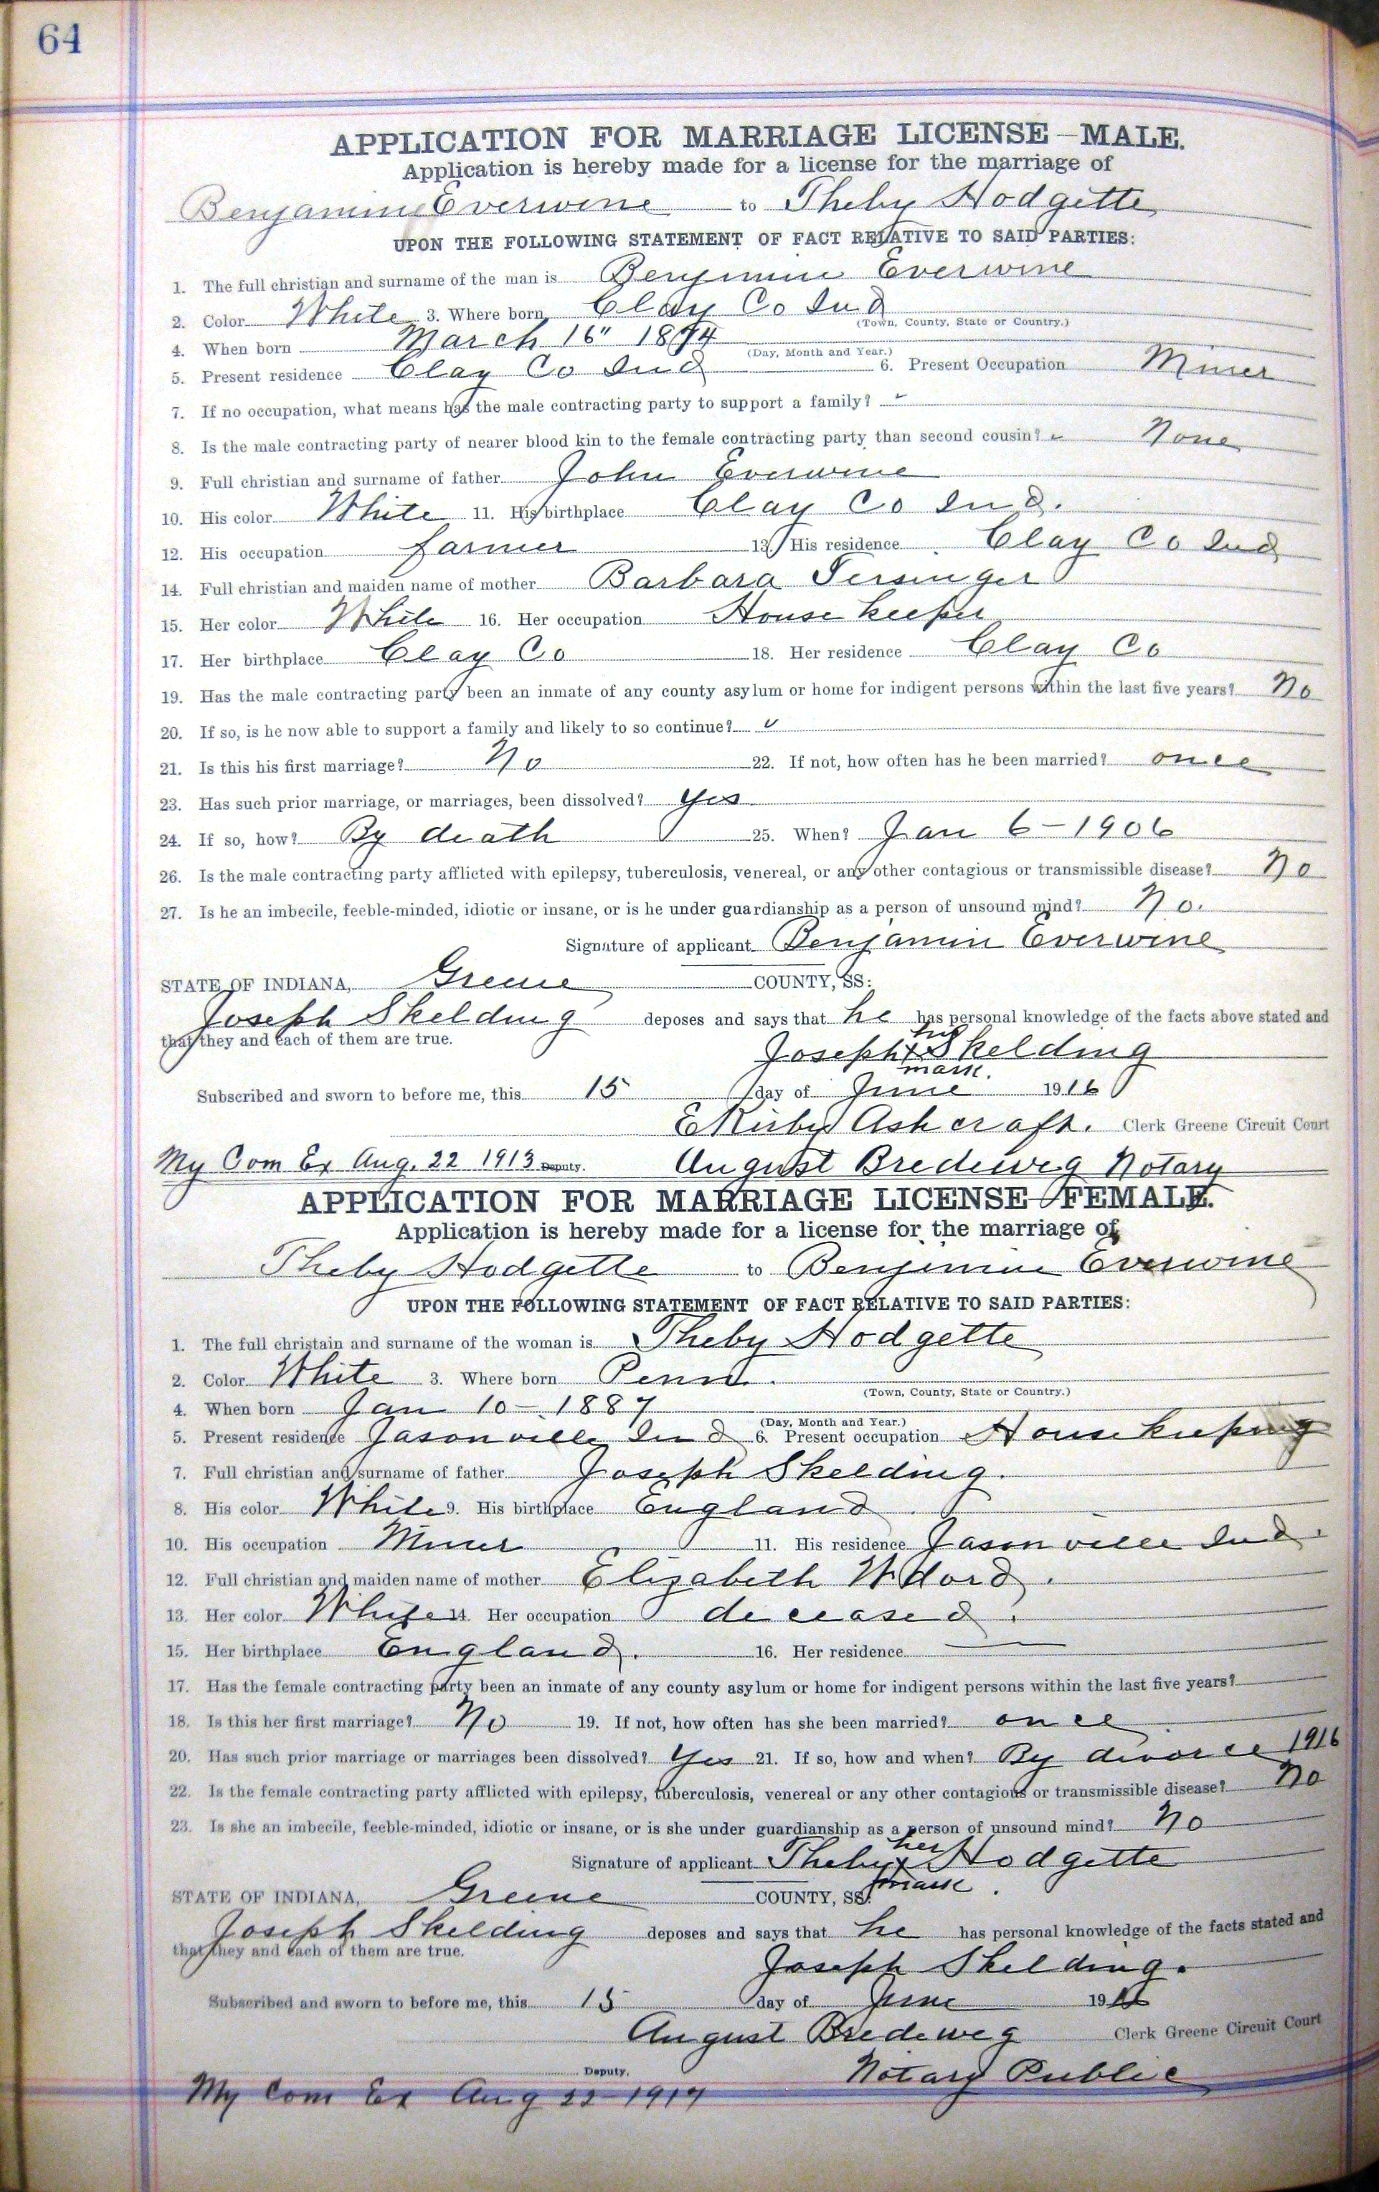 64
APPLICATION FOR MARRIAGE LICENSE—MALE.
Application is hereby made for a license for the marriage of
Benjamine Everwine to Theby Hodgette
UPON THE FOLLOWING STATEMENT OF FACT RELATIVE TO SAID PARTIES:
1. The full christian and surname of the man is Benjimin Everwine
2. Color White 3. Where born Clay Co Ind
(Town, County, State or Country.)
4. When born March 16" 1874
(Day, Month and Year.)
5. Present residence Clay Co Ind 6. Present Occupation Miner
7. If no occupation, what means has the male contracting party to support a family?
8. Is the male contracting party of nearer blood kin to the female contracting party than second cousin? None
9. Full christian and surname of father John Everwine
10. His color White 11. His birthplace Clay Co Ind.
12. His occupation farmer 13. His residence Clay Co Ind
14. Full christian and maiden name of mother Barbara Tersinger
15. Her color White 16. Her occupation House keeper
17. Her birthplace Clay Co 18. Her residence Clay Co
19. Has the male contracting party been an inmate of any county asylum or home for indigent persons within the last five years? No
20. If so, is he now able to support a family and likely to so continue?
21. Is this his first marriage? No 22. If not, how often has he been married? once
23. Has such prior marriage, or marriages, been dissolved? yes
24. If so, how? By death 25. When? Jan 6-1906
26. Is the male contracting party afflicted with epilepsy, tuberculosis, venereal, or any other contagious or transmissible disease? No
27. Is he an imbecile, feeble-minded, idiotic or insane, or is he under guardianship as a person of unsound mind? No.
Signature of applicant Benjamin Everwine
STATE OF INDIANA, Greene COUNTY, SS:
Joseph Skelding deposes and says that he has personal knowledge of the facts above stated and
that they and each of them are true.
his
Joseph X Skelding
mark.
Subscribed and sworn to before me, this 15 day of June 1916
E Kirby Ashcraft. Clerk Greene Circuit Court
My Com Ex Aug. 22 1913 Deputy. August Bredeweg Notary
APPLICATION FOR MARRIAGE LICENSE—FEMALE.
Application is hereby made for a license for the marriage of
Theby Hodgette to Benjimin Everwine
UPON THE FOLLOWING STATEMENT OF FACT RELATIVE TO SAID PARTIES:
1. The full christain and surname of the woman is Theby Hodgette
2. Color White 3. Where born Penn.
(Town, County, State or Country.)
4. When born Jan 10-1887
(Day, Month and Year.)
5. Present residence Jasonville Ind 6. Present occupation House keeping
7. Full christian and surname of father Joseph Skelding.
8. His color White 9. His birthplace England
10. His occupation Miner 11. His residence Jasonville Ind.
12. Full christian and maiden name of mother Elizabeth
13. Her color White 14. Her occupation deceased.
15. Her birthplace England. 16. Her residence
17. Has the female contracting party been an inmate of any county asylum or home for indigent persons within the last five years?
18. Is this her first marriage? No 19. If not, how often has she been married? once
20. Has such prior marriage or marriages been dissolved? Yes 21. If so, how and when? By divorce 1916
22. Is the female contracting party afflicted with epilepsy, tuberculosis, venereal or any other contagious or transmissible disease? No
23. Is she an imbecile, feeble-minded, idiotic or insane, or is she under guardianship as a person of unsound mind? No
her
Signature of applicant Theby X Hodgette
mark.
STATE OF INDIANA, Greene COUNTY, SS:
Joseph Skelding deposes and says that he has personal knowledge of the facts stated and
that they and each of them are true.
Joseph Skelding.
Subscribed and sworn to before me, this 15 day of June 1916
August Bredeweg Clerk Greene Circuit Court
Deputy. Notary Public
My Com Ex Aug 22-1917